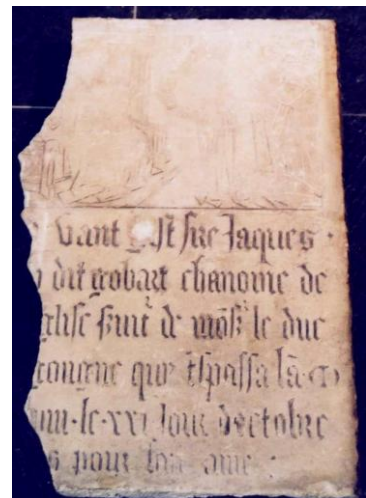 vant gist sire Jaques ·
dit gobart chanoine de
glise de mōsʳ le duc
gongne que t̄spassa lā · m
le · xxi Jour doctobre
s pour son ame :